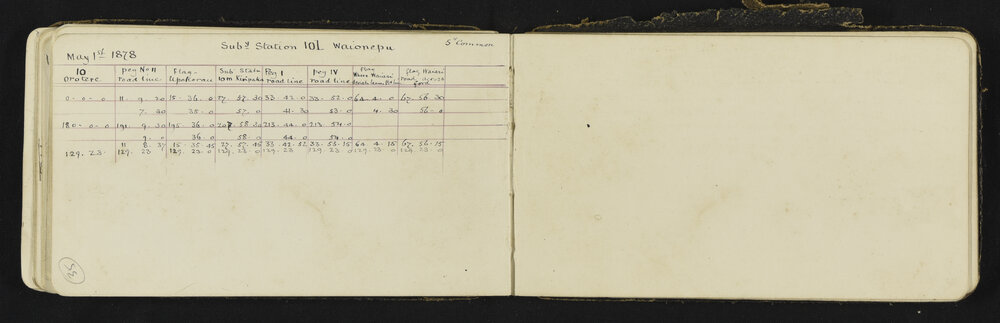 Subd Station 101 Waionepu
May 1st 1878
10 Orotere | peg No 11 road line | Flag | Subd Statn 10m | Peg I road line | peg IV road line | flag | flag road across ford
0 - 0 - 0 | 11 . 9 . 30 | 15 . 36 . 0 | 27 . 57 . 30 | 33 . 42 . 0 | 33 . 52 . 0 | 64 . 4 . 0 | 67 . 56 . 30
7 . 30 | 35 . 0 | 57 . 0 | 41 . 30 | 53 . 0 | 4 . 30 | 56 . 0
180 - 0 - 0 | 191 . 9 . 30 | 195 . 36 . 0 | 207 . 58 . 30 | 213 . 44 . 0 | 213 . 54 . 0
9 . 0 | 36 . 0 | 58 . 0 | 44 . 0 | 54 . 0
11 8 . 37 | 15 . 35 . 45 | 27 . 57 . 45 | 33 . 42 . 52 | 33 . 53 . 15 | 64 . 4 . 15 | 67 . 56 . 15
129 . 23 | 129 . 23 | 129 . 23 . 0 | 129 . 23 . 0 | 129 . 23 | 129 . 23 . 0 | 129 . 23 . 0 | 129 . 23 . 0